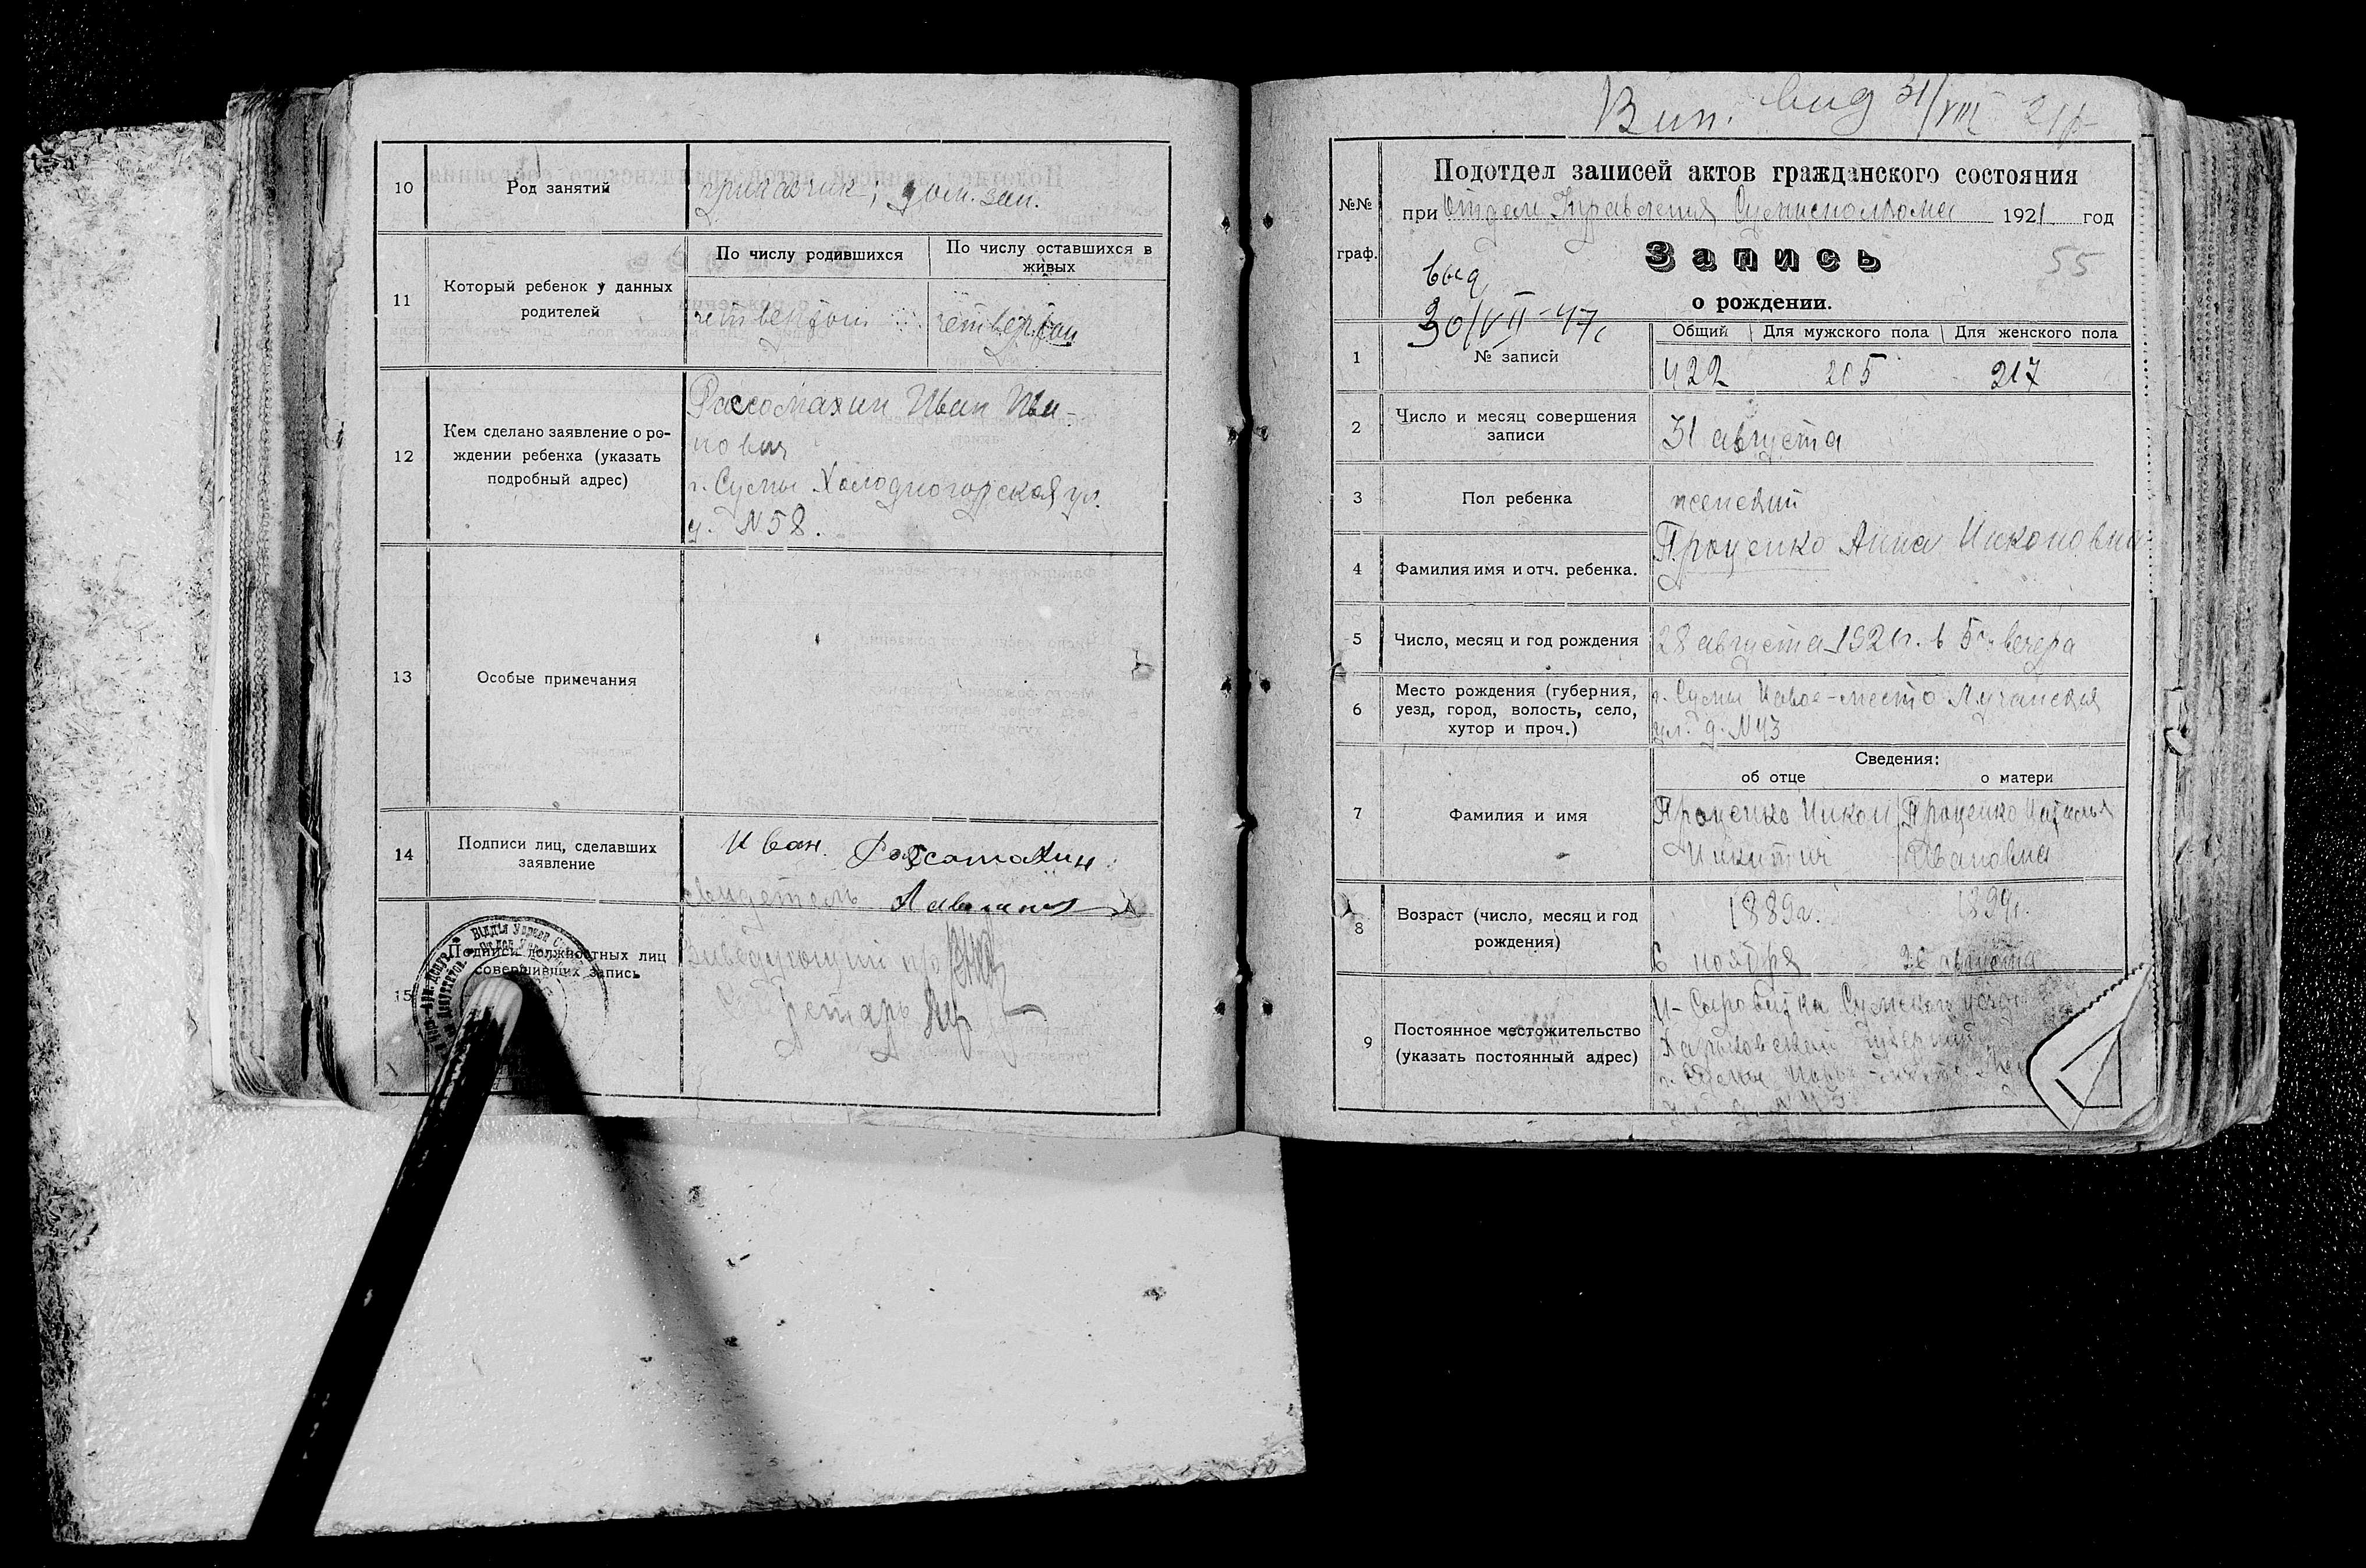 10 Род занятий приказчик; дом. зан.
11 Который ребенок у данных родителей
По числу родившихся
По числу оставшихся в живых
четвертый четвертый
12 Кем сделано заявление о ро-
ждении ребенка (указать
подробный адрес)
Рассомахин Иван Ива-
нович
г. Сумы Холодногорская ул.
д. №58.
13 Особые примечания
14 Подписи лиц, сделавших
заявление
Иван Рассомахин
свидетель
15 Подписи должностных лиц
совершивших запись
Заведующий п/о
Секретарь
Вип. вид 31/VIII 21р
№№ граф.
Подотдел записей актов гражданского состояния
при Отделе Управления Сумисполкома 1921 год
Запись
55
о рождении.
выд
30/VII-47г
1 № записи
Общий Для мужского пола Для женского пола
422 205 217
2 Число и месяц совершения
записи
31 августа
3 Пол ребенка женский
4 Фамилия имя и отч. ребенка.
Проценко Анна Никоновна
5 Число, месяц и год рождения 28 августа 1921г. в 5 ч. вечера
6 Место рождения (губерния,
уезд, город, волость, село,
хутор и проч.)
г. Сумы Новое-место Луганская
ул. д. №43
Сведения:
об отце о матери
7 Фамилия и имя
Проценко Никон Проценко Наталья
Никитич Ивановна
8 Возраст (число, месяц и год
рождения)
1889г. 1899г.
6 ноября 26 августа
9 Постоянное местожительство
(указать постоянный адрес)
Н-Сыроватка Сумского уезда
Харьковской губернии
г. Сумы Новое-место
д. №43